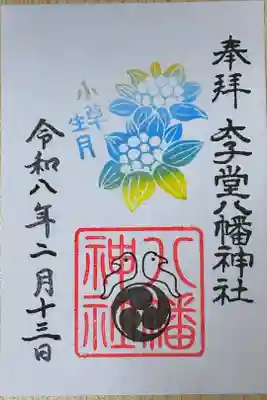 奉拝
太子堂八幡神社
小草生月
八幡
神社
令和八年二月十三日